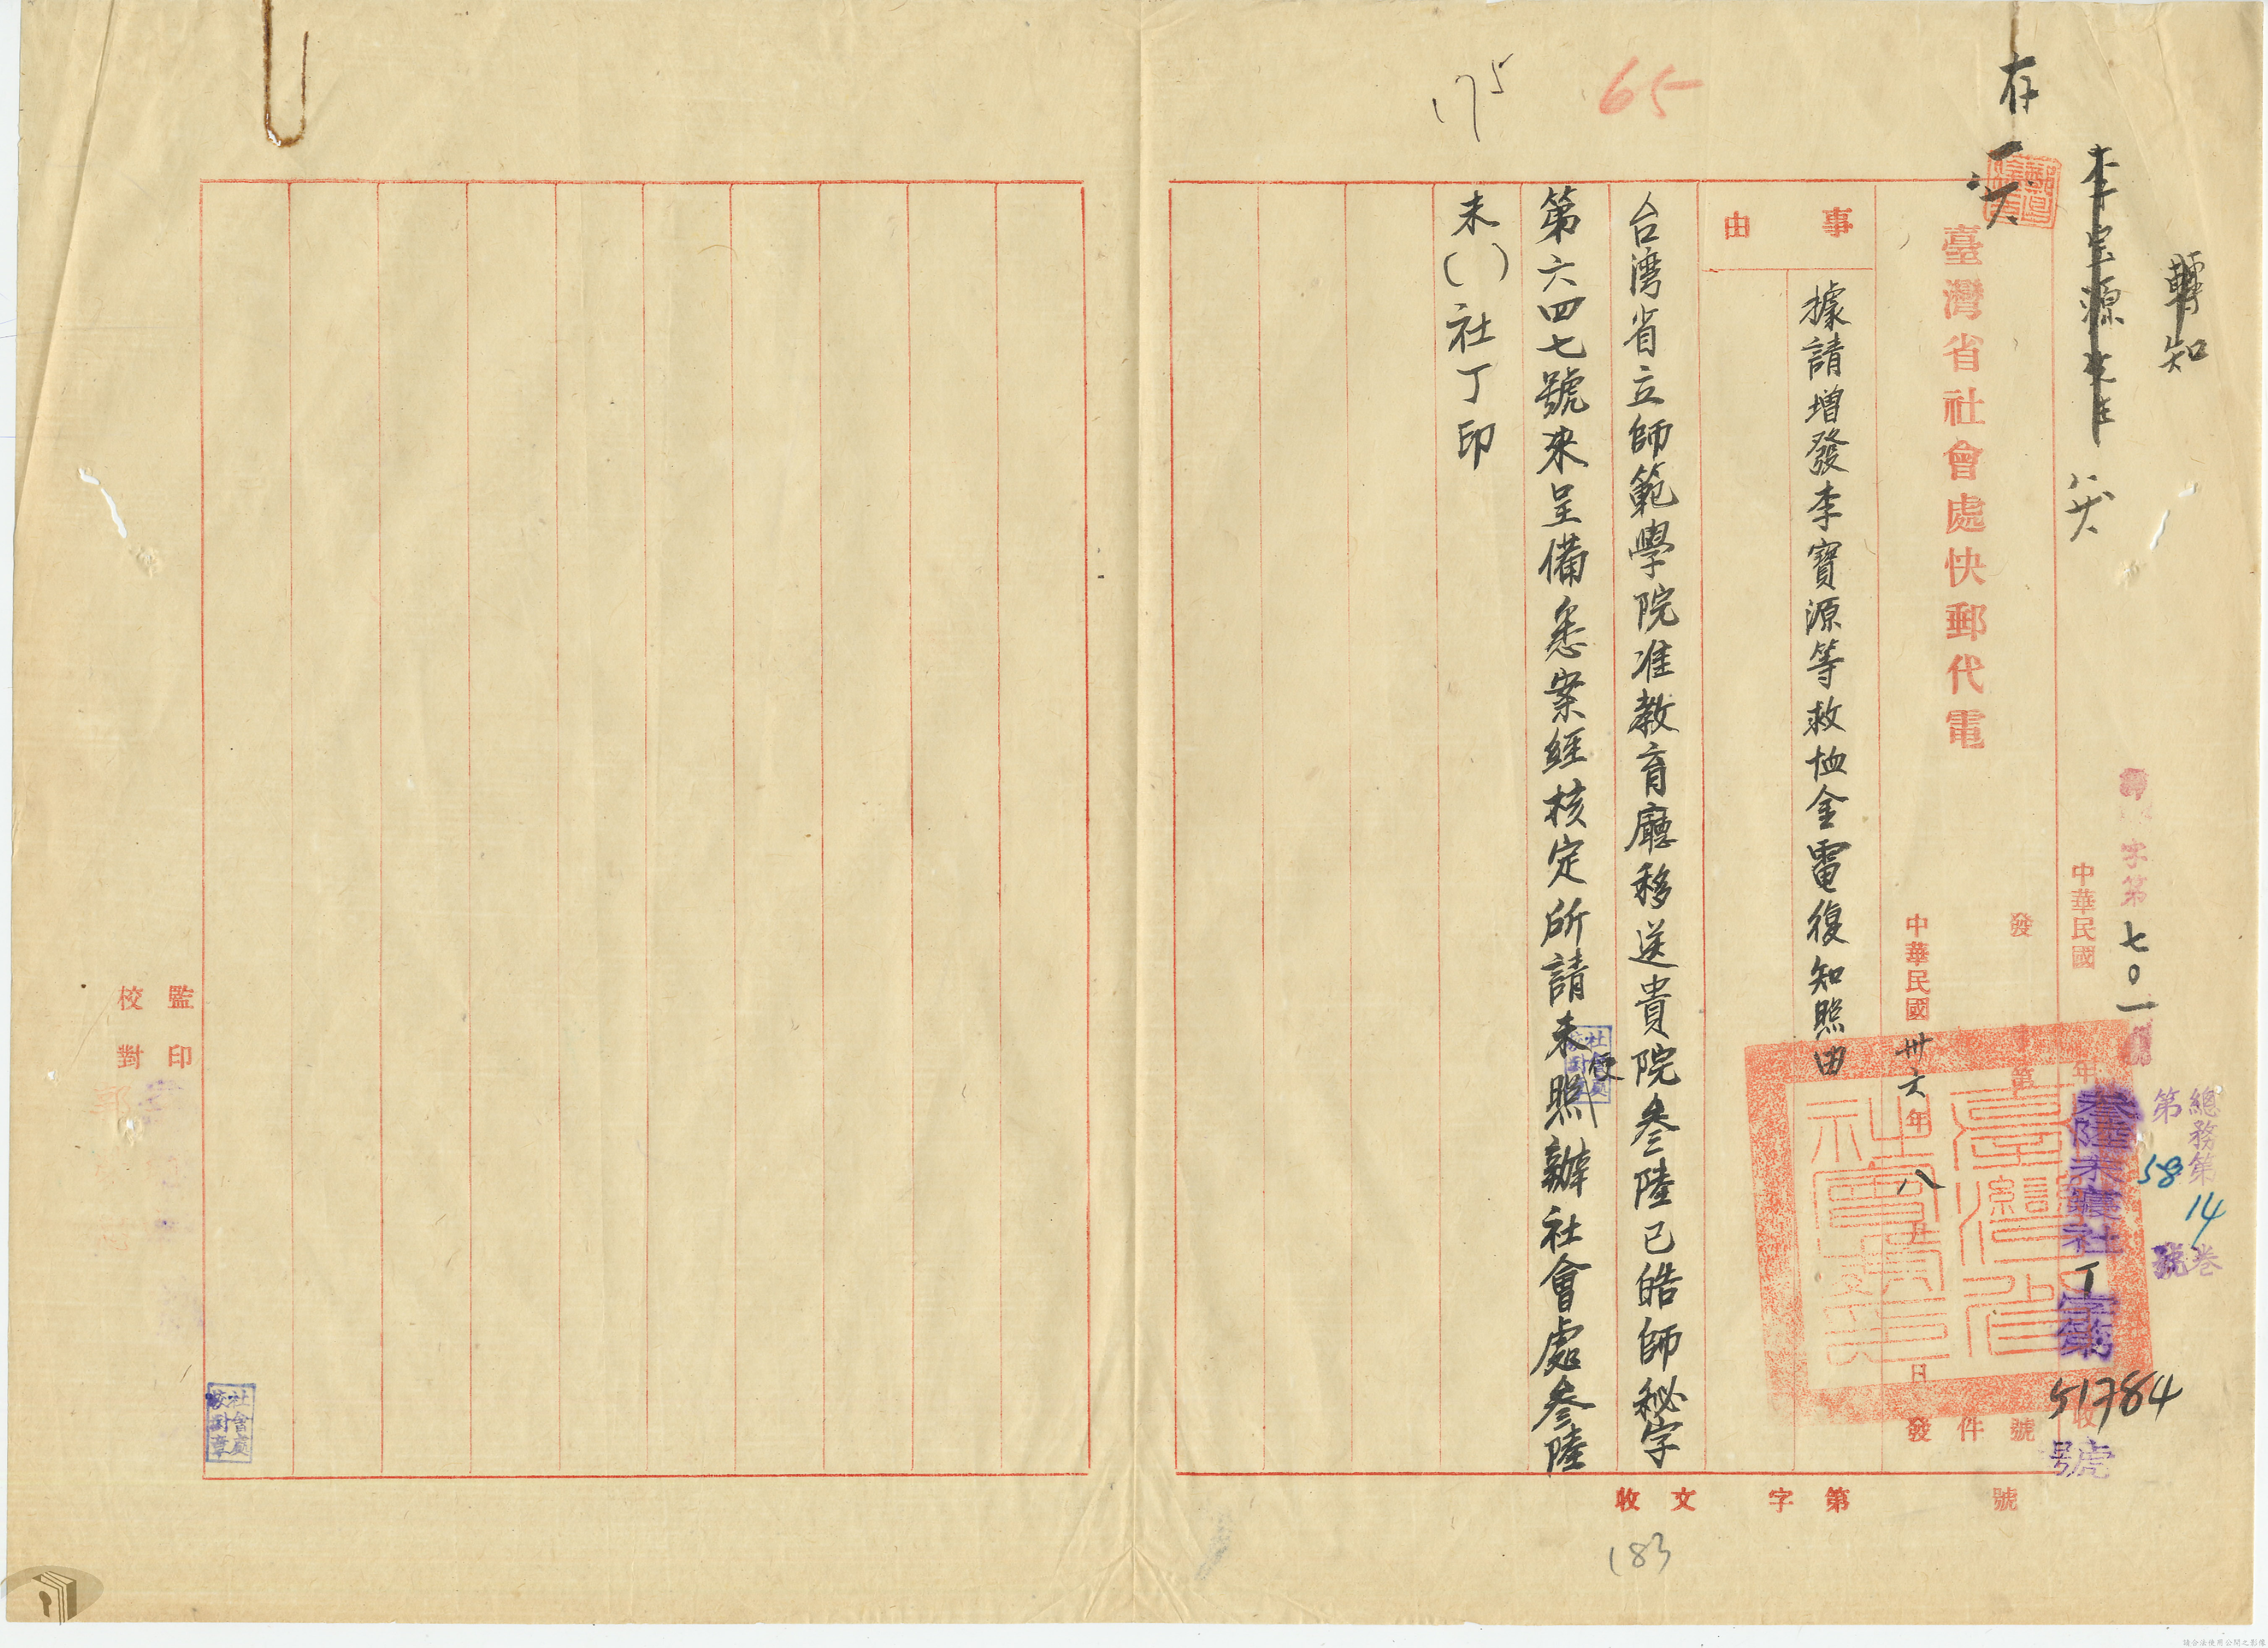 轉知
李宝源先生
存
字第七〇一
總務第14卷
第58號
中華民國 年
叁陸未寢社丁字第51784號
收
臺灣省社會處快郵代電
發 字第 號
件
中華民國卅六年八月 日發
事由
據請增發李寶源等救恤金電復知照由
台湾省立師範學院准教育廳移送貴院叁陸已皓師秘字
第六四七號來呈備悉案經核定所請未便照辦社會處叁陸
未()社丁印
社會處校對章
臺灣省社會處印
收文 字第 號
65
175
183
監印
校對
社會處校對章